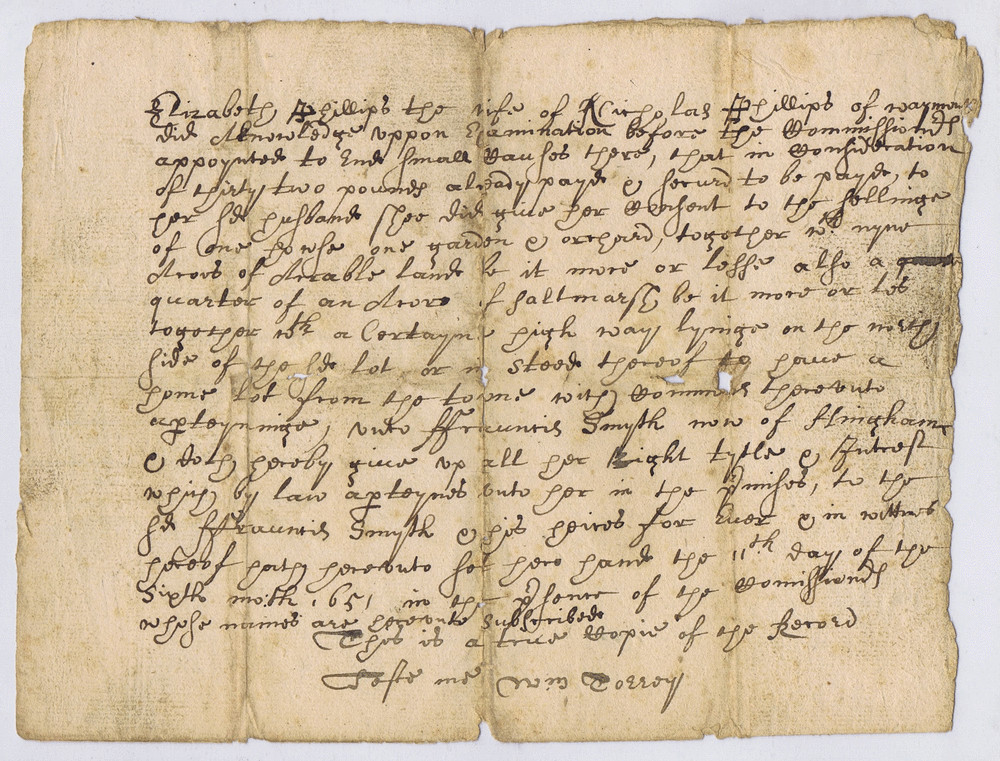 Elizabeth Phillips the wife of Nicholas Phillips of waymouth
did Acknowledge uppon Examination before the Commissiones
appoynted to End small Causes there, that in Consideration
of thirty two pounds already payd & securd to be payd, to
her sd husband shee did give her Consent to the sellinge
of one howse one garden & orchard, together wth nyne
Acres of Arrable land be it more or lesse also a
quarter of an Acre of saltmarsh be it more or les
together wth a Certayne high way lyinge on the north
side of the sd lot or in steed thereof to have a
home lot from the towne with Commons thereunto
apteyninge, unto ffrauncis Smyth now of Hingham
& doth hereby give up all her Right tytle & Intrest
which by law apteynes unto her in the pmises, to the
sd ffrauncis Smyth & his heires for Ever & in wittnes
hereof hath hereunto set here hand the 11th day of the
Sixth moth 1651 in the psence of the Comissiones
whose names are hereunto subscribed
This is a true Copie of the Record
Teste me Wm Torrey